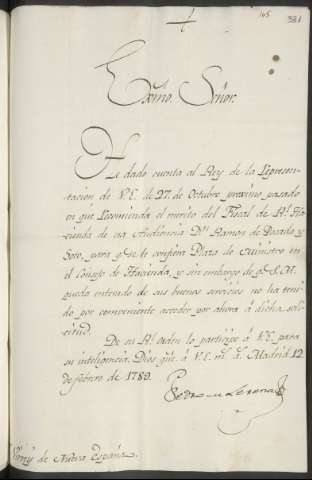 165
381
Exmo. Señor.
He dado cuenta al Rey de la Represen-
tacion de V.E. de 27. de Octubre proximo pasado
en que recomienda el merito del Fiscal de Rl. Ha-
cienda de esa Audiencia Dn. Ramon de Posada y
Soto, para qe. se le confiera Plaza de Ministro en
el Consejo de Hacienda, y sin embargo de qe. S.M.
queda enterado de sus buenos servicios no ha teni-
do por conveniente acceder por ahora á dicha soli-
citud.
De su Rl. orden lo participo á V.E. para
su inteligencia. Dios gue. á V.E. ms. as. Madrid 12
de febrero de 1789.
Pedro de Lerena
Virrey de Nueva España.